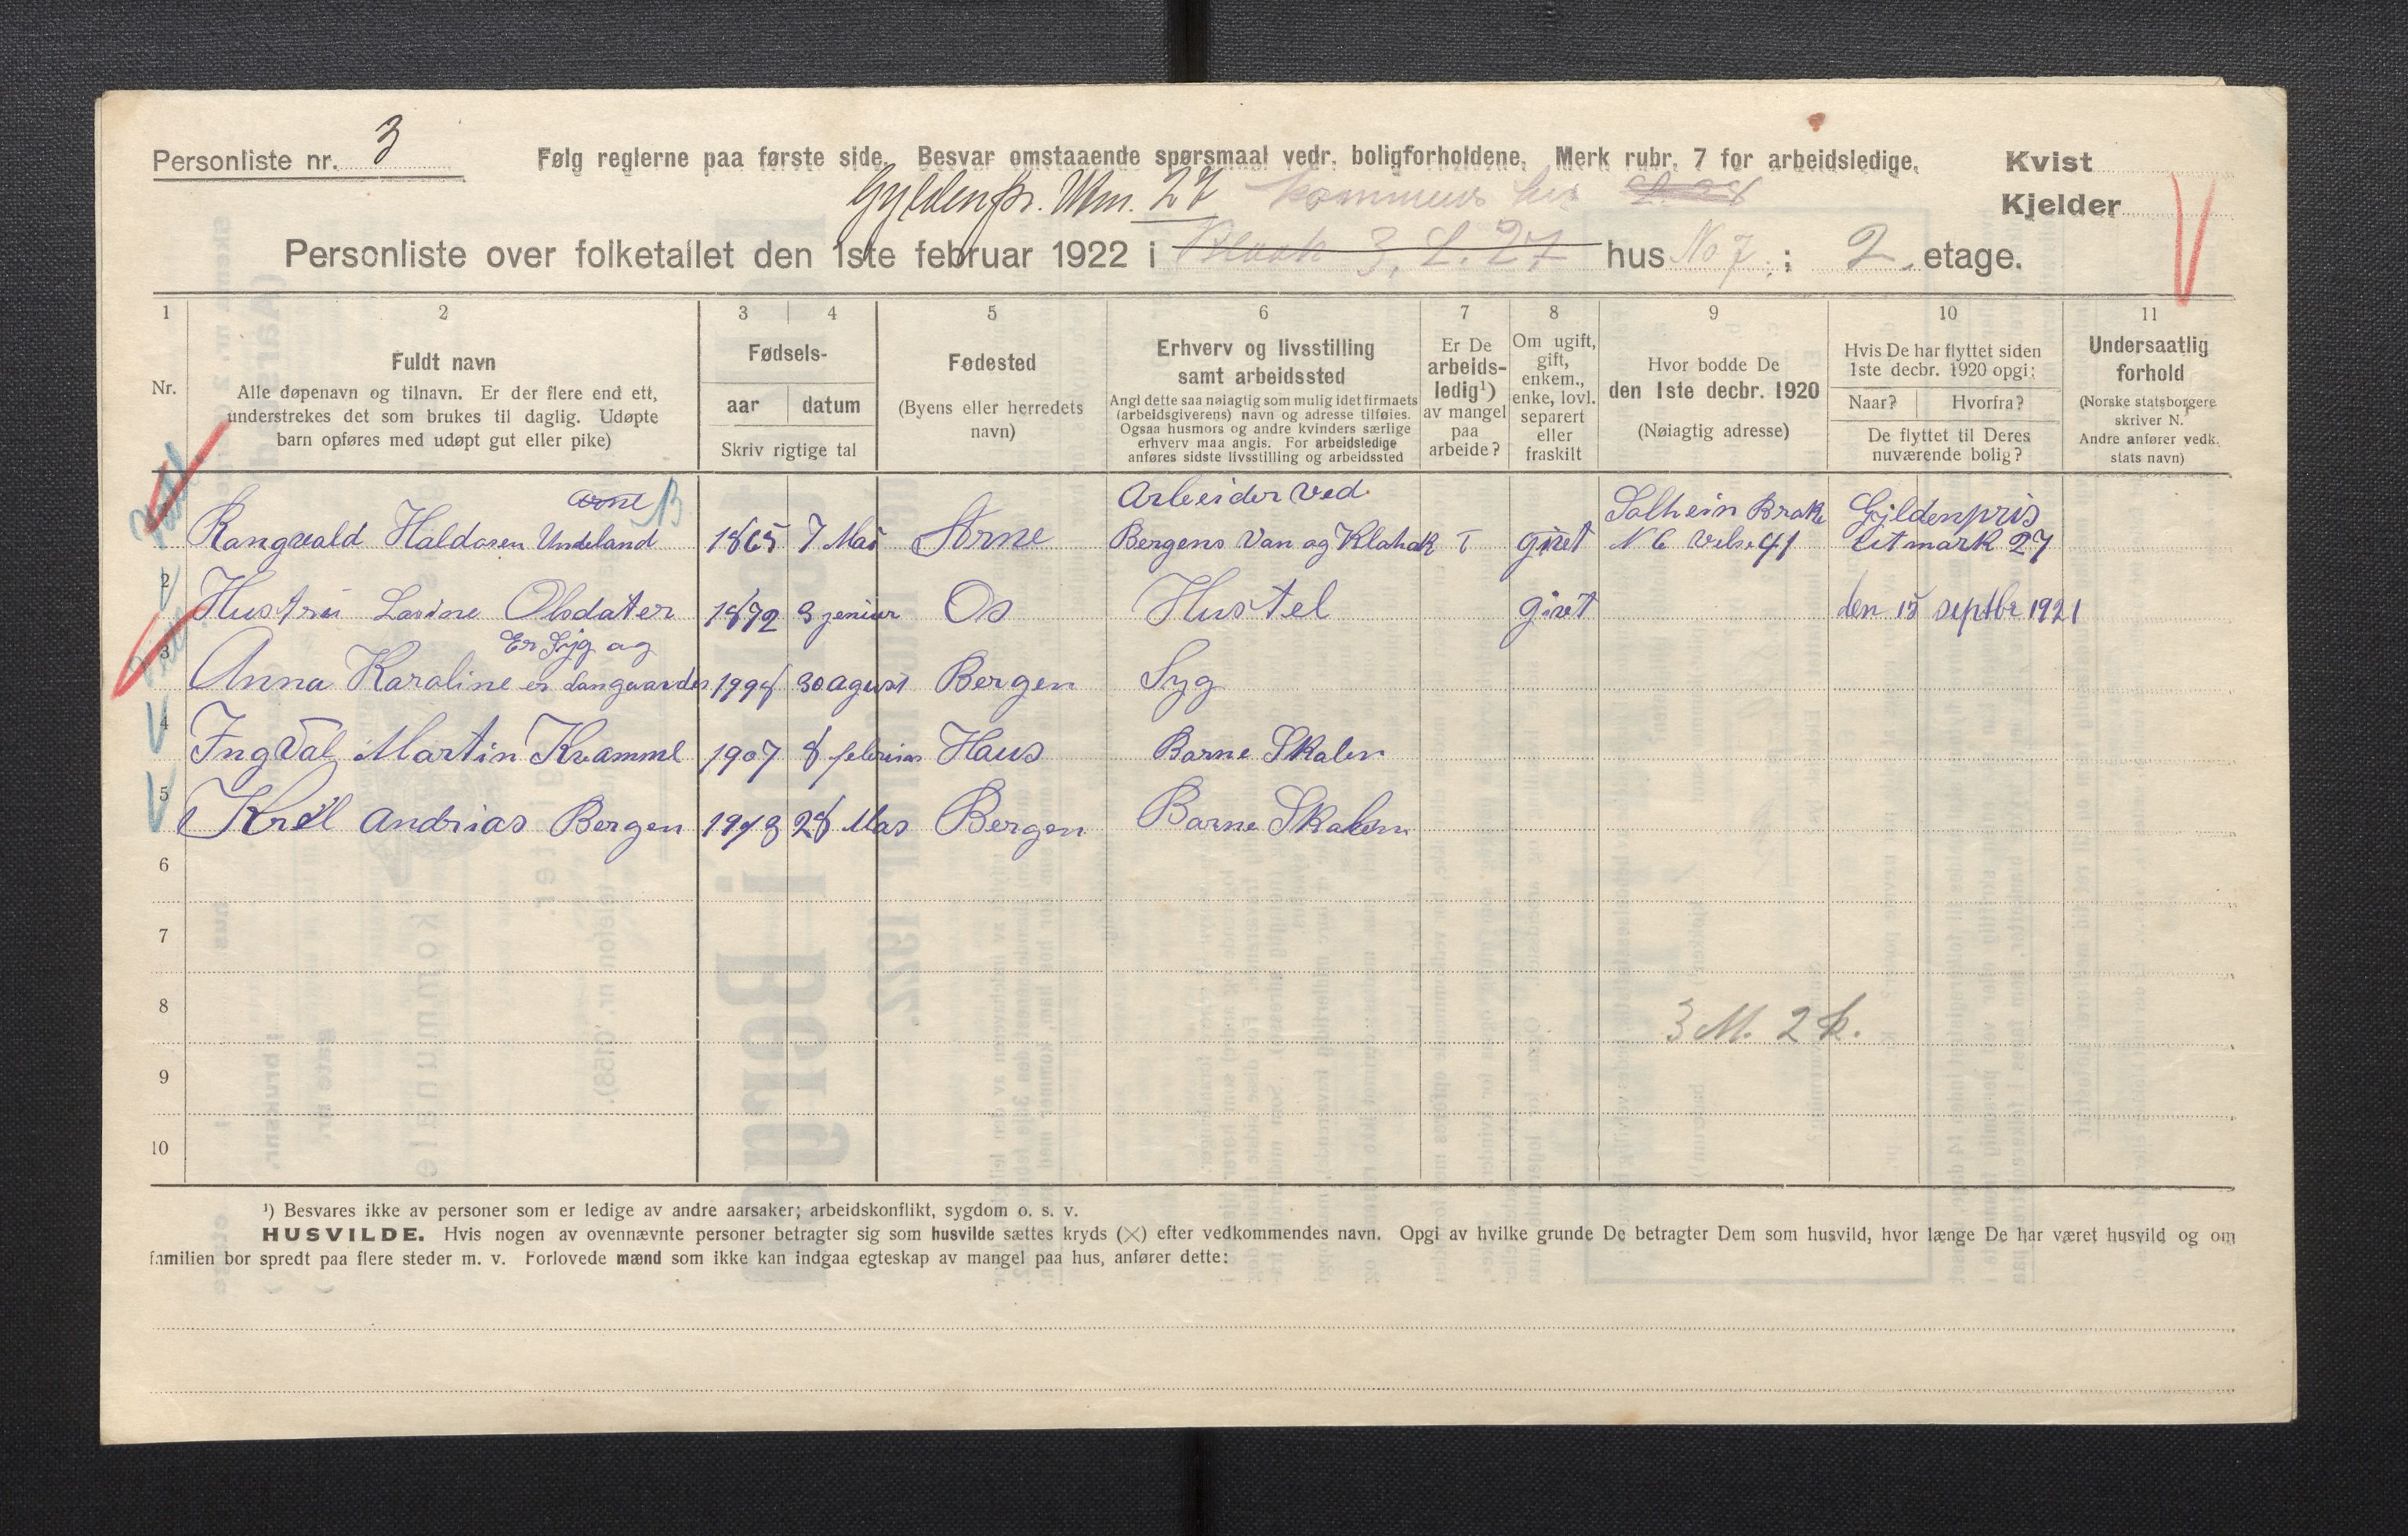 Personliste nr. 3
Følg reglerne paa første side. Besvar omstaaende spørsmaal vedr. boligforholdene. Merk rubr. 7 for arbeidsledige.
Kvist
Kjelder
Gyldenpr. Utm. 27
Personliste over folketallet den 1ste februar 1922 i Blook 3, L. 27 hus No 7 ; 2 etage.
1 2 3 4 5 6 7 8 9 10 11
Nr.
Fuldt navn
Alle døpenavn og tilnavn. Er der flere end ett,
understrekes det som brukes til daglig. Udøpte
barn opføres med udøpt gut eller pike)
Fødsels-
aar datum
Skriv rigtige tal
Fødested
(Byens eller herredets
navn)
Erhverv og livsstilling
samt arbeidssted
Angi dette saa nøiagtig som mulig idet firmaets
(arbeidsgiverens) navn og adresse tilføies.
Ogsaa husmors og andre kvinders særlige
erhverv maa angis. For arbeidsledige
anføres sidste livsstilling og arbeidssted
Er De
arbeids-
ledig¹)
av mangel
paa
arbeide?
Om ugift,
gift,
enkem.,
enke, lovl.
separert
eller
fraskilt
Hvor bodde De
den 1ste decbr. 1920
(Nøiagtig adresse)
Hvis De har flyttet siden
1ste decbr. 1920 opgi:
Naar? Hvorfra?
De flyttet til Deres
nuværende bolig?
Undersaatlig
forhold
(Norske statsborgere
skriver N.
Andre anfører vedk.
stats navn)
Arbeider Ved Solhein Brake Gyldenpris
Rangvald Haldosen Undeland 1865 7 Mai Arne Bergens Van og Klohak givet N 6 41 Utmark 27
2 Hustru Olsdater 1872 3 Os Hustel givet den 15 septbr 1921
Er Syg og
3 Anna Karoline er 30 agust Bergen Syg
4 Ingval Martin Kvamme 1907 8 Haus Barne Skolen
5 Andrias Bergen 28 Mas Bergen Barne Skolen
6
7
8
3 M. 2 k.
9
10
¹) Besvares ikke av personer som er ledige av andre aarsaker; arbeidskonflikt, sygdom o. s. v.
HUSVILDE. Hvis nogen av ovennævnte personer betragter sig som husvilde sættes kryds (×) efter vedkommendes navn. Opgi av hvilke grunde De betragter Dem som husvild, hvor længe De har været husvild og om
familien bor spredt paa flere steder m. v. Forlovede mænd som ikke kan indgaa egteskap av mangel paa hus, anfører dette: